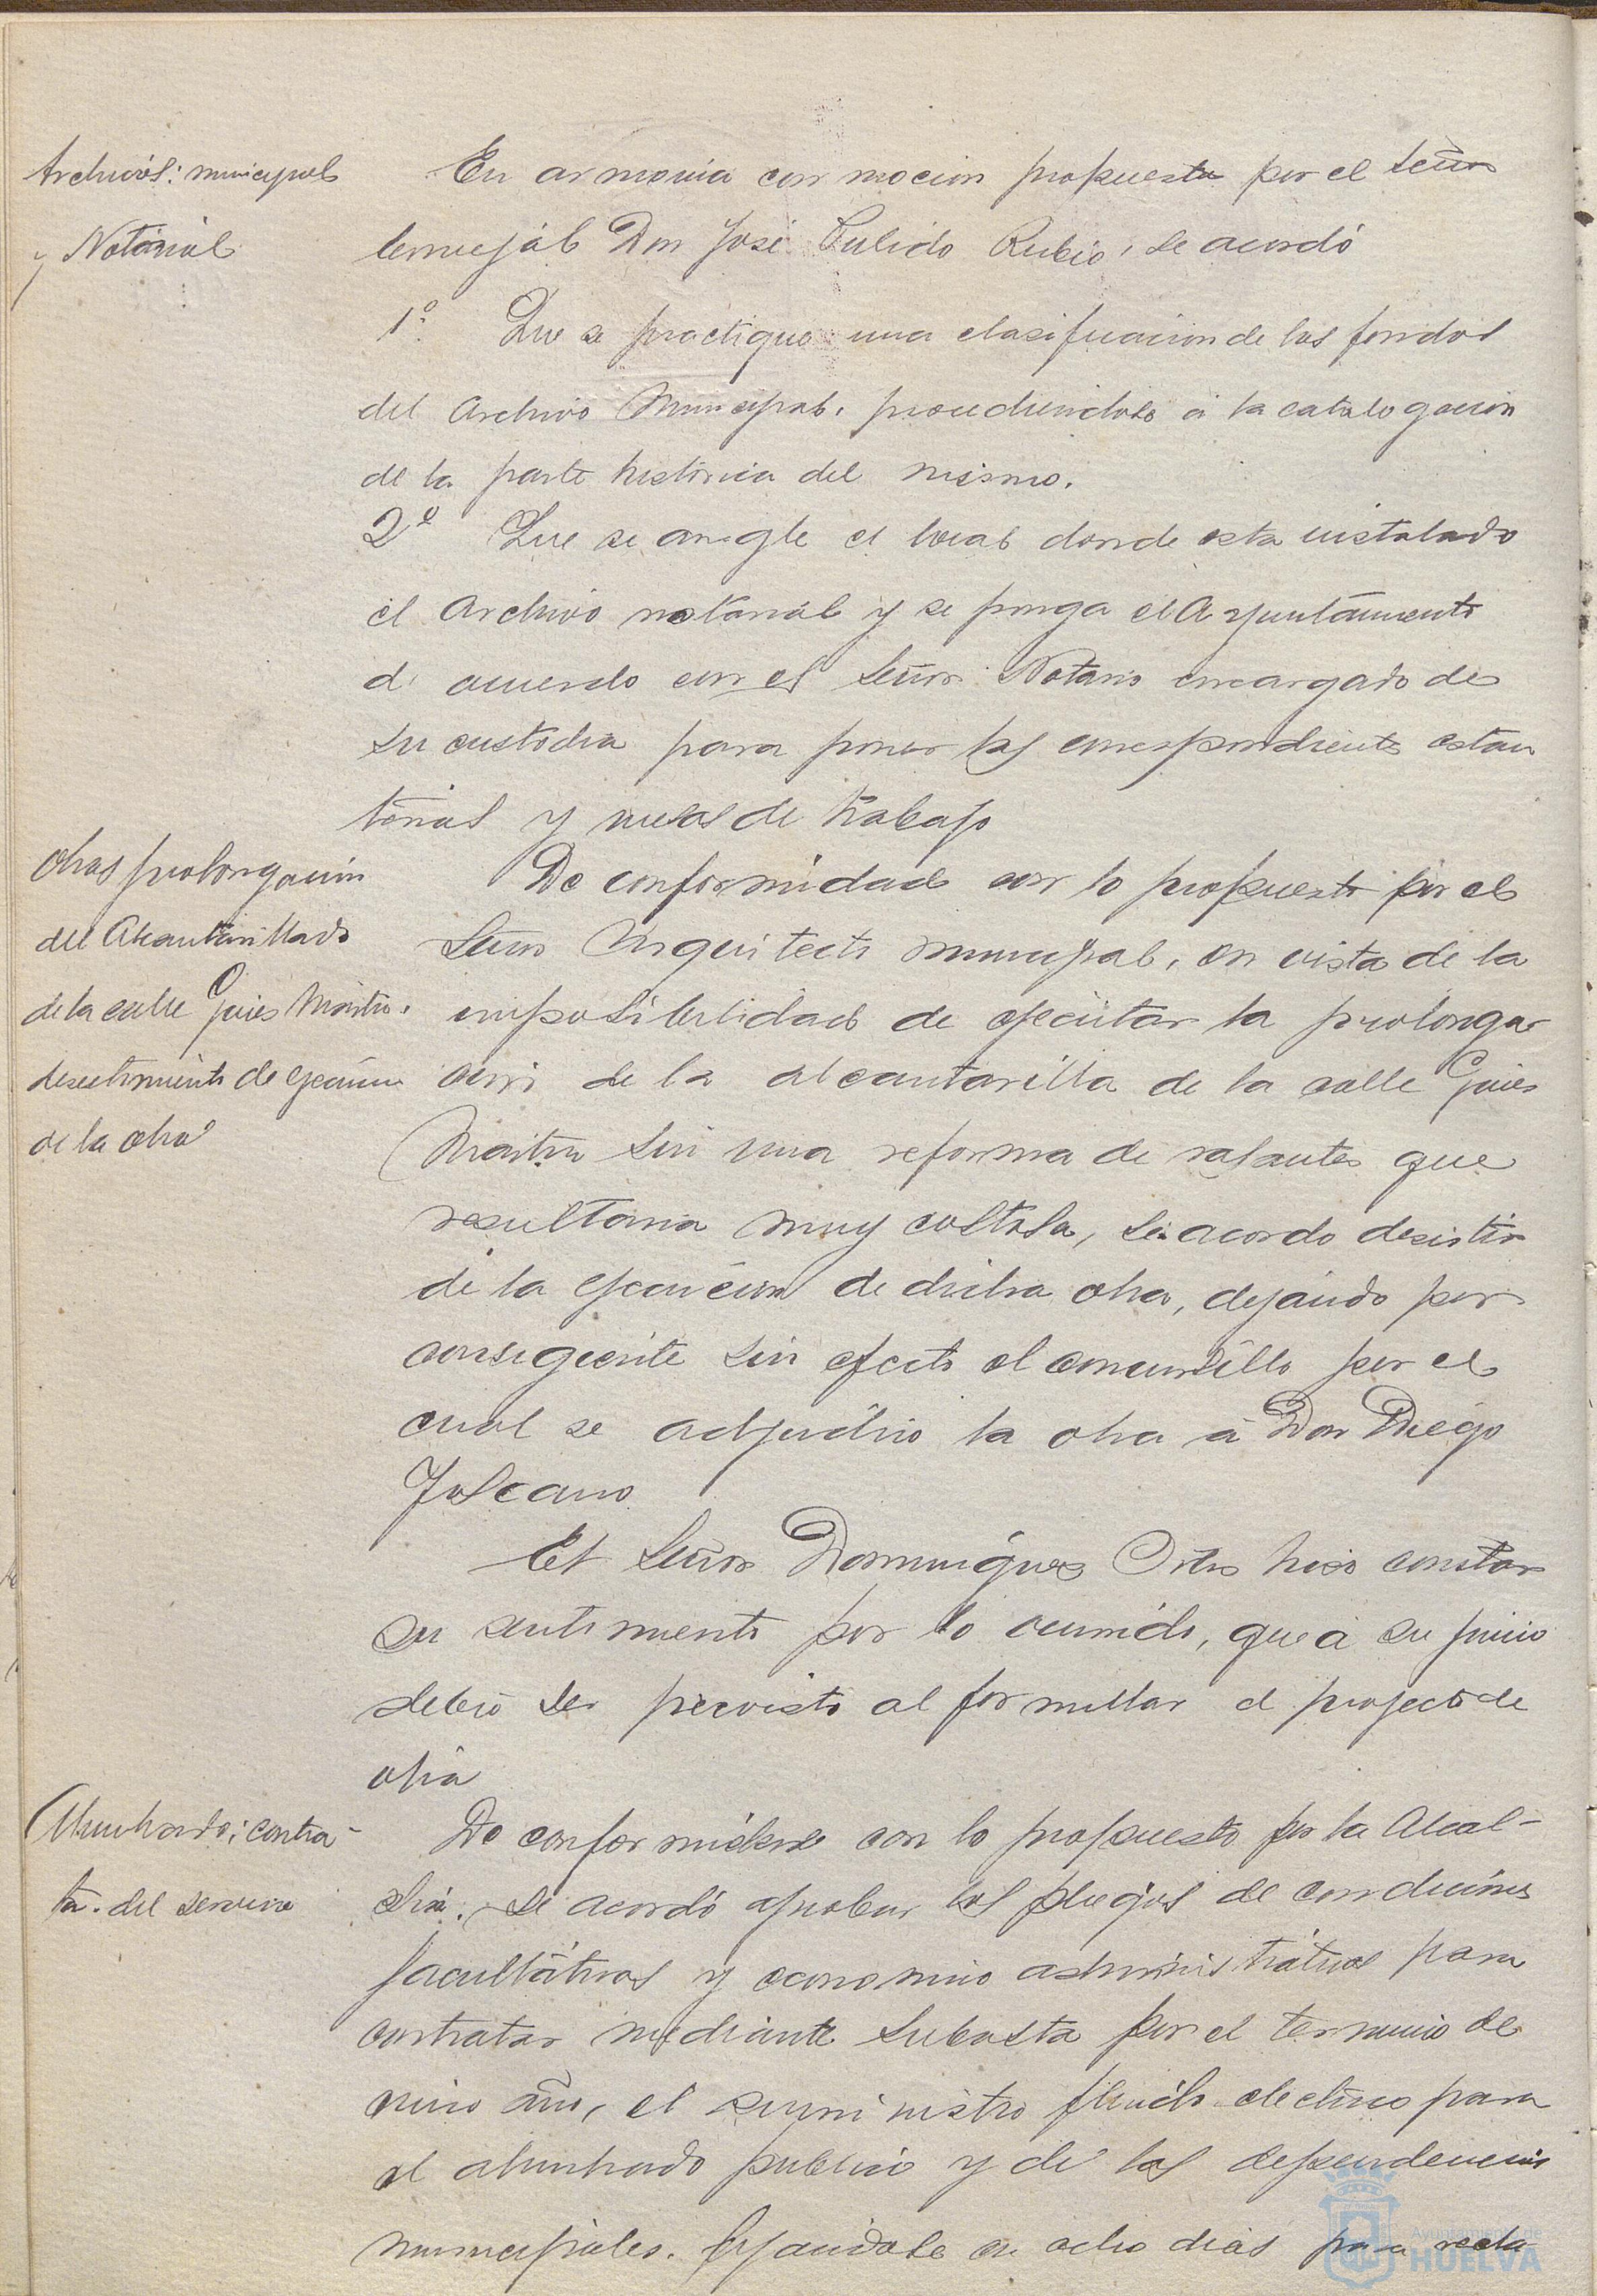 Archivos: municipal
y Notarial
En armonia con mocion propuesta por el Señor
Concejal Don José Pulido Rubio, se acordó
1º Que se practique una clasificacion de los fondos
del Archivo Municipal, procediendose á la catalogacion
de la parte historica del mismo.
2º Que se arregle el local donde esta instalado
el Archivo notarial y se ponga el Ayuntamiento
de acuerdo con el Señor Notario encargado de
su custodia para poner las correspondientes estan
terias y mesas de trabajo
Obras prolongación
del Alcantarillado
de la calle Ginés Martin.
desestimiento de ejecucion
de la obra
De conformidad con lo propuesto por el
Señor Arquitecto municipal, en vista de la
imposibilidad de ejecutar la prolonga-
cion de la alcantarilla de la calle Gines
Martin sin una reforma de rasantes que
resultaria muy costosa, se acordo desistir
de la ejecucion de dicha obra, dejando por
consiguiente sin efecto el concursillo por el
cual se adjudico la obra á Don Diego
Toscano
El Señor Dominguez Ortiz hizo constar
su sentimiento por lo ocurrido, que á su juicio
debió ser previsto al formular el proyecto de
obra
Alumbrado; contra-
ta. del servicio
De conformidad con lo propuesto por la Alcal-
dia. se acordó aprobar los pliegos de condiciones
facultativas y economico administrativas para
contratar mediante subasta por el termino de
cinco años, el suministro fluido electrico para
el alumbrado publico y de las dependencias
municipales. fijandose en ocho dias para recla-
Ayuntamiento de
HUELVA